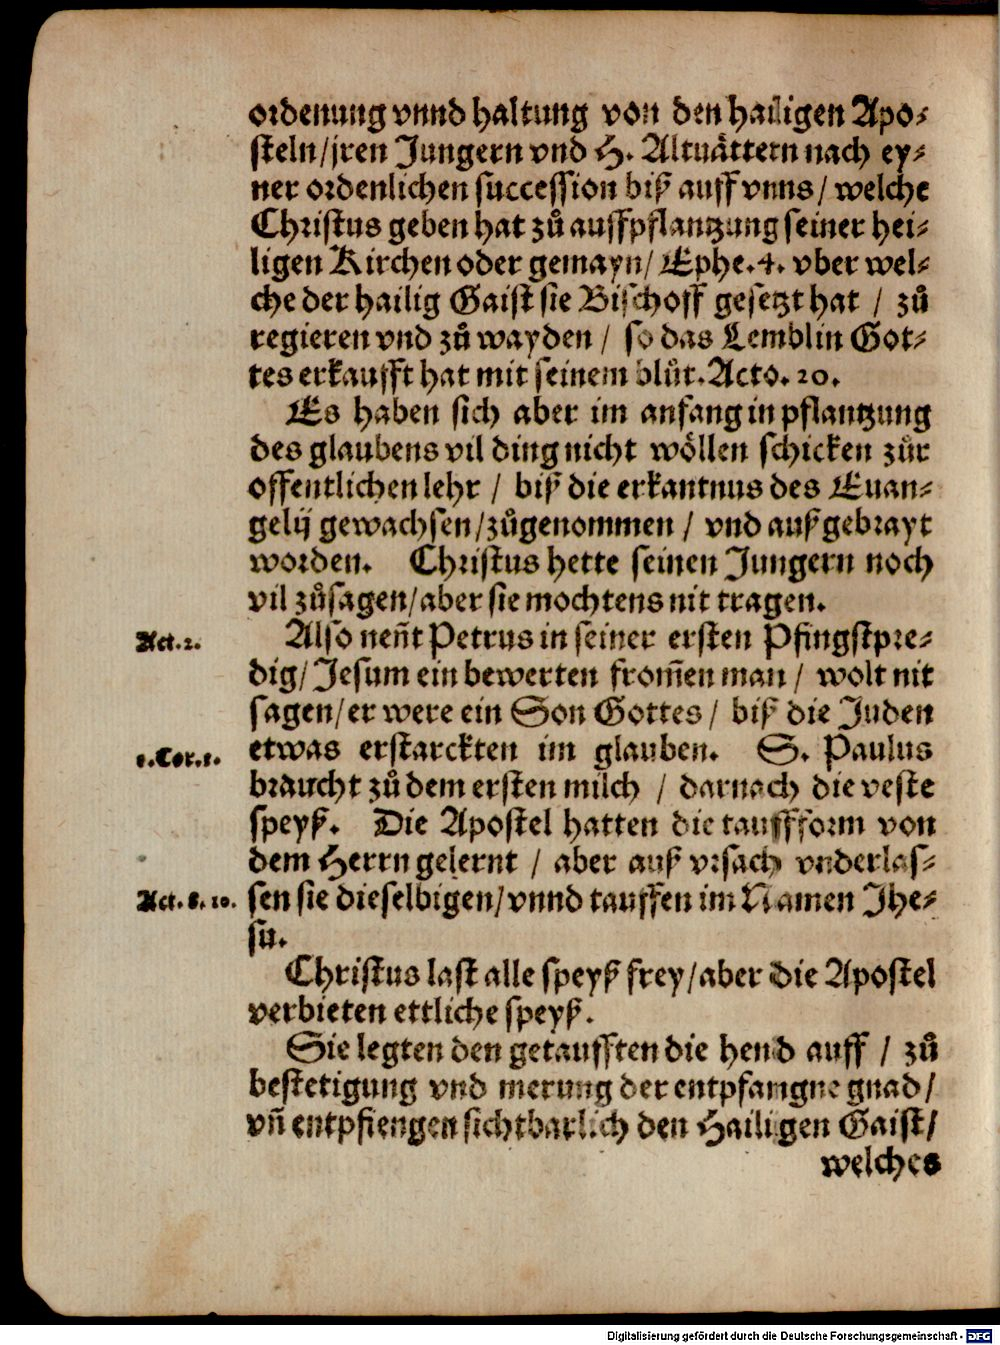 ordenung vnnd haltung von den hailigen Apo-
steln/jren Jungern vnd H. Altuåttern nach ey-
ner ordenlichen succession biß auff vnns/ welche
Christus geben hat zů auffpflantzung seiner hei-
ligen Kirchen oder gemayn/ Ephe.4. vber wel-
che der hailig Gaist sie Bischoff gesetzt hat / zů
regieren vnd zů wayden / so das Lemblin Got-
tes erkaufft hat mit seinem blůt. Acto. 20.
Es haben sich aber im anfang in pflantzung
des glaubens vil ding nicht wöllen schicken zůr
offentlichen lehr / biß die erkantnus des Euan-
gelij gewachsen/zůgenommen / vnd außgebrayt
worden. Christus hette seinen Jungern noch
vil zůsagen/aber sie mochtens nit tragen.
Act.2. Also neñt Petrus in seiner ersten Pfingstpre-
dig/ Jesum ein bewerten from̃en man / wolt nit
sagen/er were ein Son Gottes / biß die Juden
1.Cor.1. etwas erstarckten im glauben. S. Paulus
braucht zů dem ersten milch / darnach die veste
speyß. Die Apostel hatten die taufffform von
dem Herrn gelernt / aber auß vrsach vnderlas-
Act. 8. 10. sen sie dieselbigen/vnnd tauffen im Namen Jhe-
su.
Christus last alle speyß frey/aber die Apostel
verbieten ettliche speyß.
Sie legten den getaufften die hend auff / zů
bestetigung vnd merung der entpfangne gnad/
vñ entpfiengen sichtbarlich den Hailigen Gaist/
welches
Digitalisierung gefördert durch die Deutsche Forschungsgemeinschaft - DFG